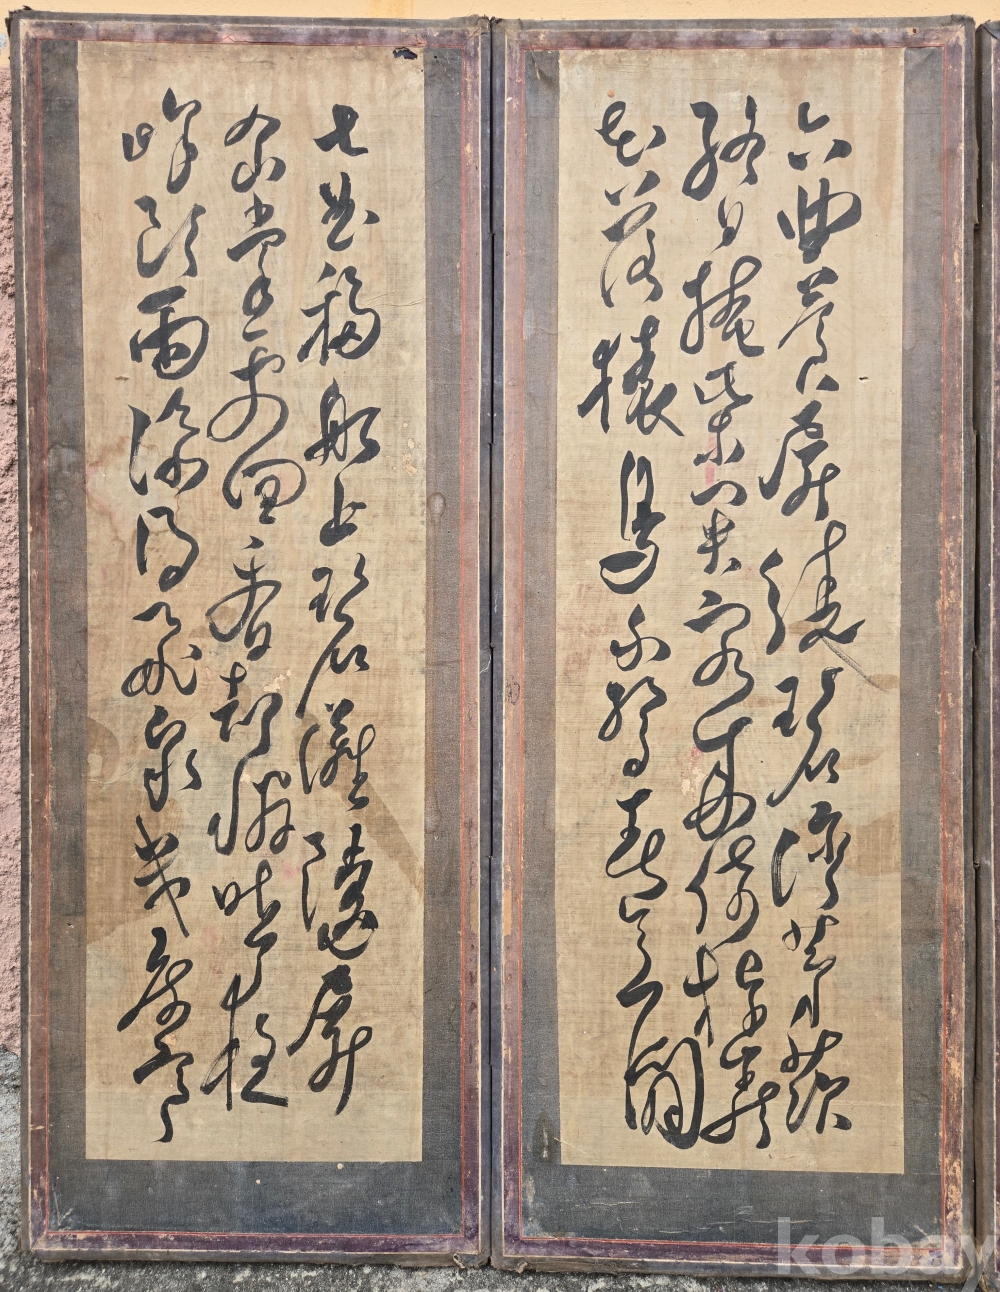 六曲蒼屏繞碧灣茅茨
終日掩柴門客來倚棹巖
花落猿鳥不驚春意閒
七曲移船上碧灘隱屏
仙掌更回看却憐昨夜
峰頭雨添得飛泉幾度寒